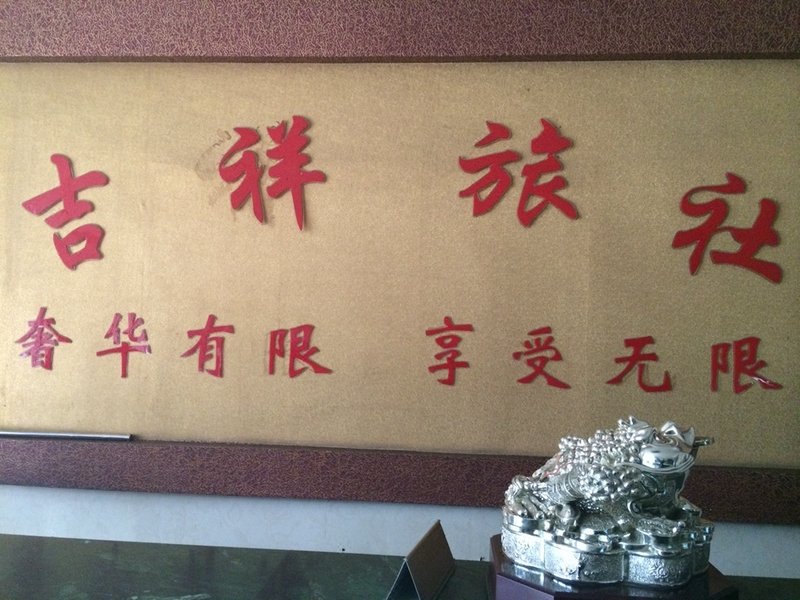 吉祥旅社
奢华有限 享受无限